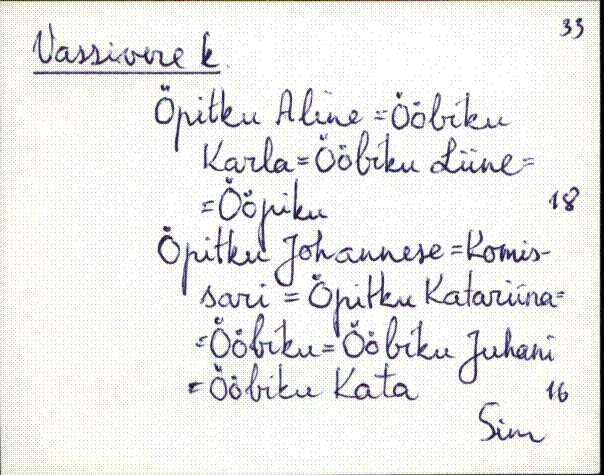 33
Vassivere k.
Öpitku Aline = Ööbiku
Karla = Ööbiku Liine =
= Ööpiku 18
Öpitku Johannese = Komis-
sari = Öpitku Katariina =
= Ööbiku = Ööbiku Juhani
= Ööbiku Kata 16
Sim